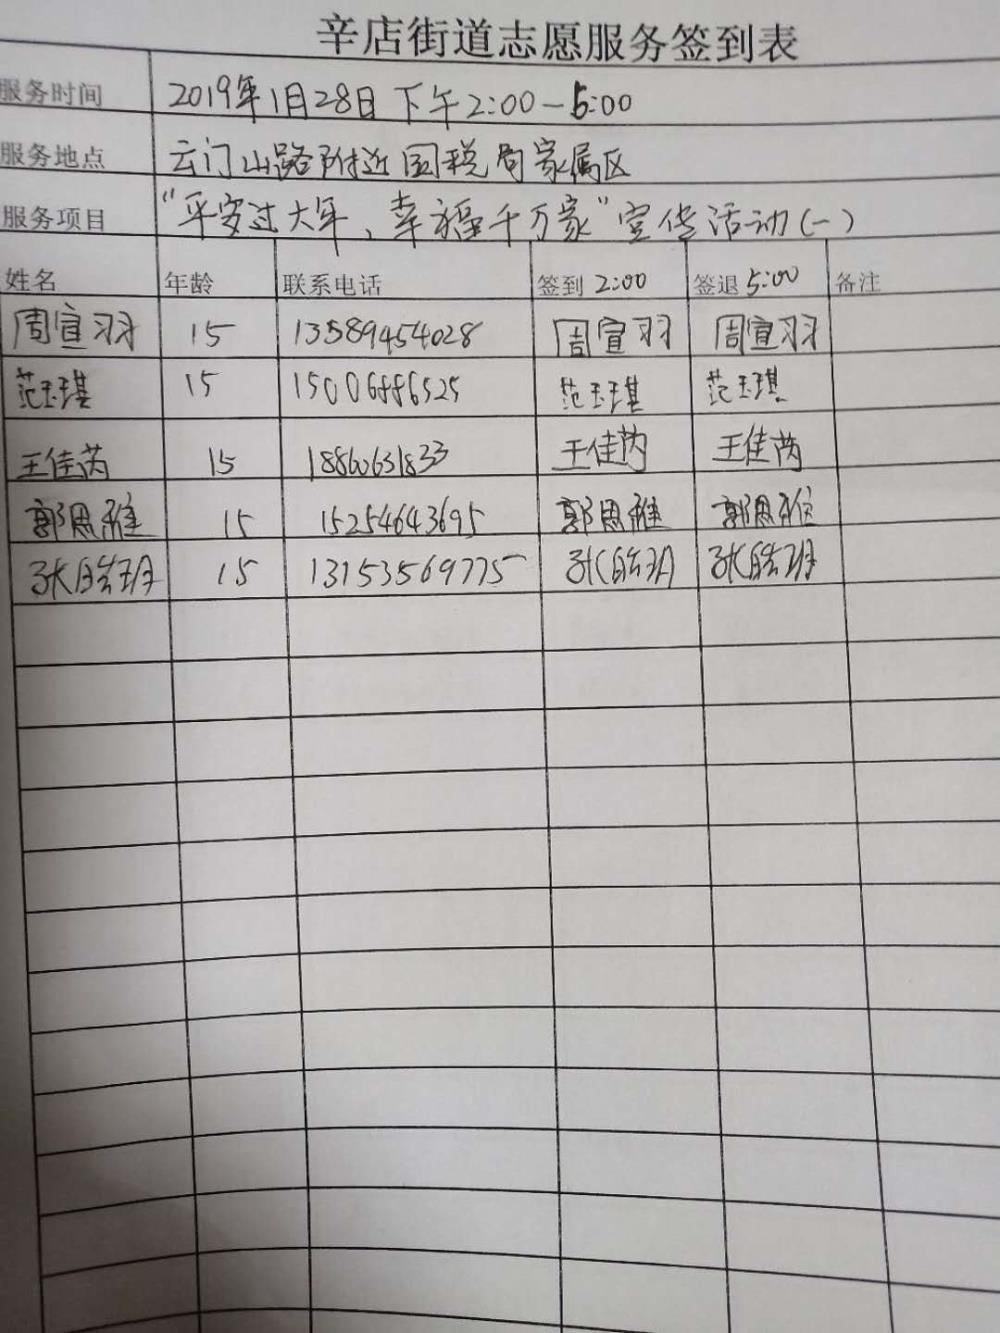 辛店街道志愿服务签到表
服务时间 2019年1月28日下午2:00-5:00
服务地点 云门山路附近国税局家属区
服务项目 "平安过大年、幸福千万家"宣传活动(一)
姓名 年龄 联系电话 签到 2:00 签退 5:00 备注
周宣羽 15 13589454028 周宣羽 周宣羽
范玉琪 15 15006886525 范玉琪 范玉琪
王佳芮 15 18860631833 王佳芮 王佳芮
郭恩雅 15 15254643695 郭恩雅 郭恩雅
张皓玥 15 13153569775 张皓玥 张皓玥